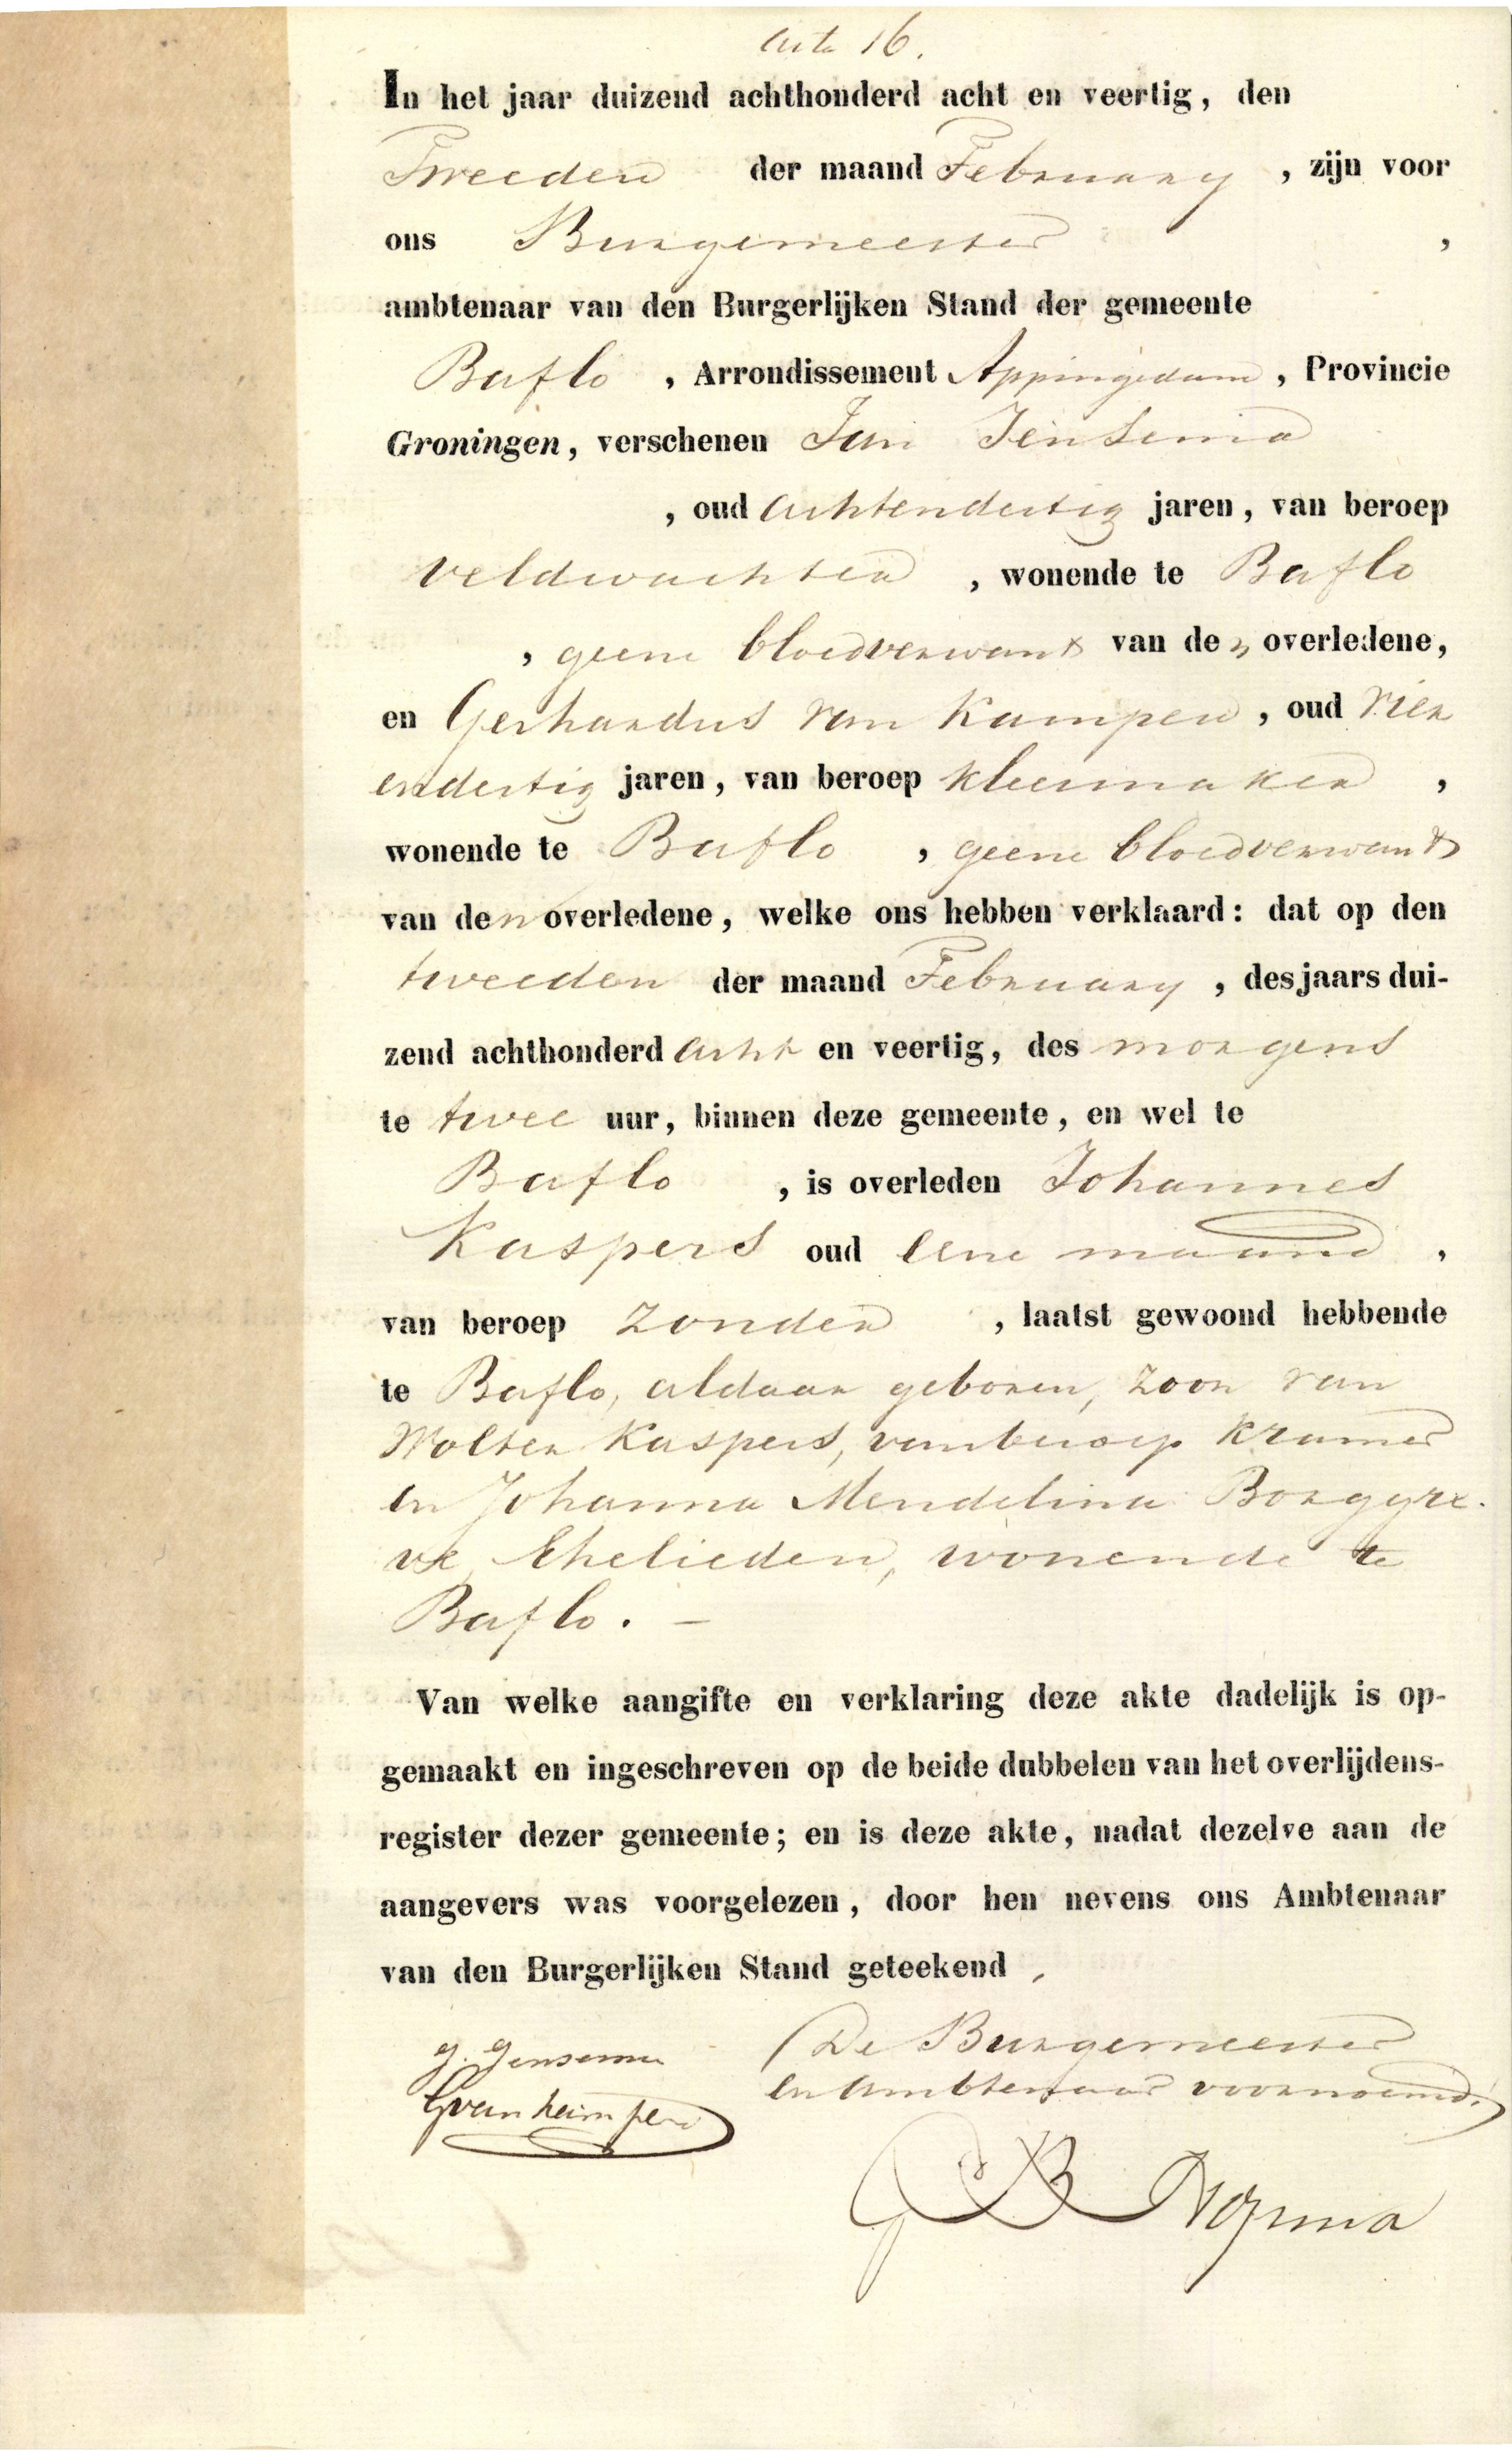 Acte 16.
In het jaar duizend achthonderd acht en veertig, den
Tweeden der maand February, zijn voor
ons Burgemeester,
ambtenaar van den Burgerlijken Stand der gemeente
Baflo, Arrondissement Appingedam, Provincie
Groningen, verschenen Jan Jensema
, oud Achtendertig jaren, van beroep
veldwachter, wonende te Baflo
, geene bloedverwant van den overledene,
en Gerhardus van Kampen, oud vier
endertig jaren, van beroep kleermaker,
wonende te Baflo, geene bloedverwant
van den overledene, welke ons hebben verklaard: dat op den
tweeden der maand February, des jaars dui-
zend achthonderd Acht en veertig, des morgens
te twee uur, binnen deze gemeente, en wel te
Baflo, is overleden Johannes
Kaspers oud Eene maand,
van beroep zonder, laatst gewoond hebbende
te Baflo, aldaar geboren, zoon van
Wolter Kaspers, van beroep Kramer
en Johanna Mendelina Borggre-
ve, Ehelieden, wonende te
Baflo. —
Van welke aangifte en verklaring deze akte dadelijk is op-
gemaakt en ingeschreven op de beide dubbelen van het overlijdens-
register dezer gemeente; en is deze akte, nadat dezelve aan de
aangevers was voorgelezen, door hen nevens ons Ambtenaar
van den Burgerlijken Stand geteekend.
J. Jensema De Burgemeester
G van Kampen en Ambtenaar voornoemd.